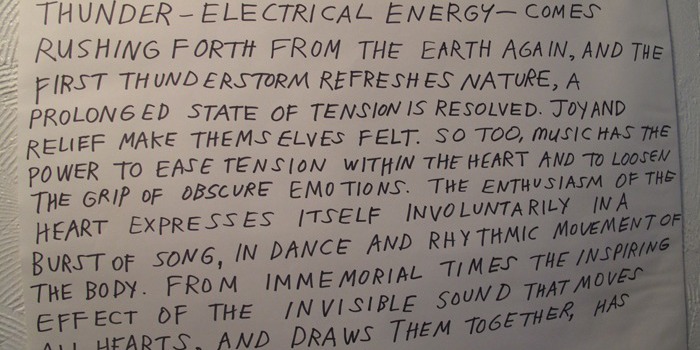 THUNDER – ELECTRICAL ENERGY – COMES
RUSHING FORTH FROM THE EARTH AGAIN, AND THE
FIRST THUNDERSTORM REFRESHES NATURE, A
PROLONGED STATE OF TENSION IS RESOLVED. JOY AND
RELIEF MAKE THEMSELVES FELT. SO TOO, MUSIC HAS THE
POWER TO EASE TENSION WITHIN THE HEART AND TO LOOSEN
THE GRIP OF OBSCURE EMOTIONS. THE ENTHUSIASM OF THE
HEART EXPRESSES ITSELF INVOLUNTARILY IN A
BURST OF SONG, IN DANCE AND RHYTHMIC MOVEMENT OF
THE BODY. FROM IMMEMORIAL TIMES THE INSPIRING
EFFECT OF THE INVISIBLE SOUND THAT MOVES
ALL HEARTS, AND DRAWS THEM TOGETHER, HAS